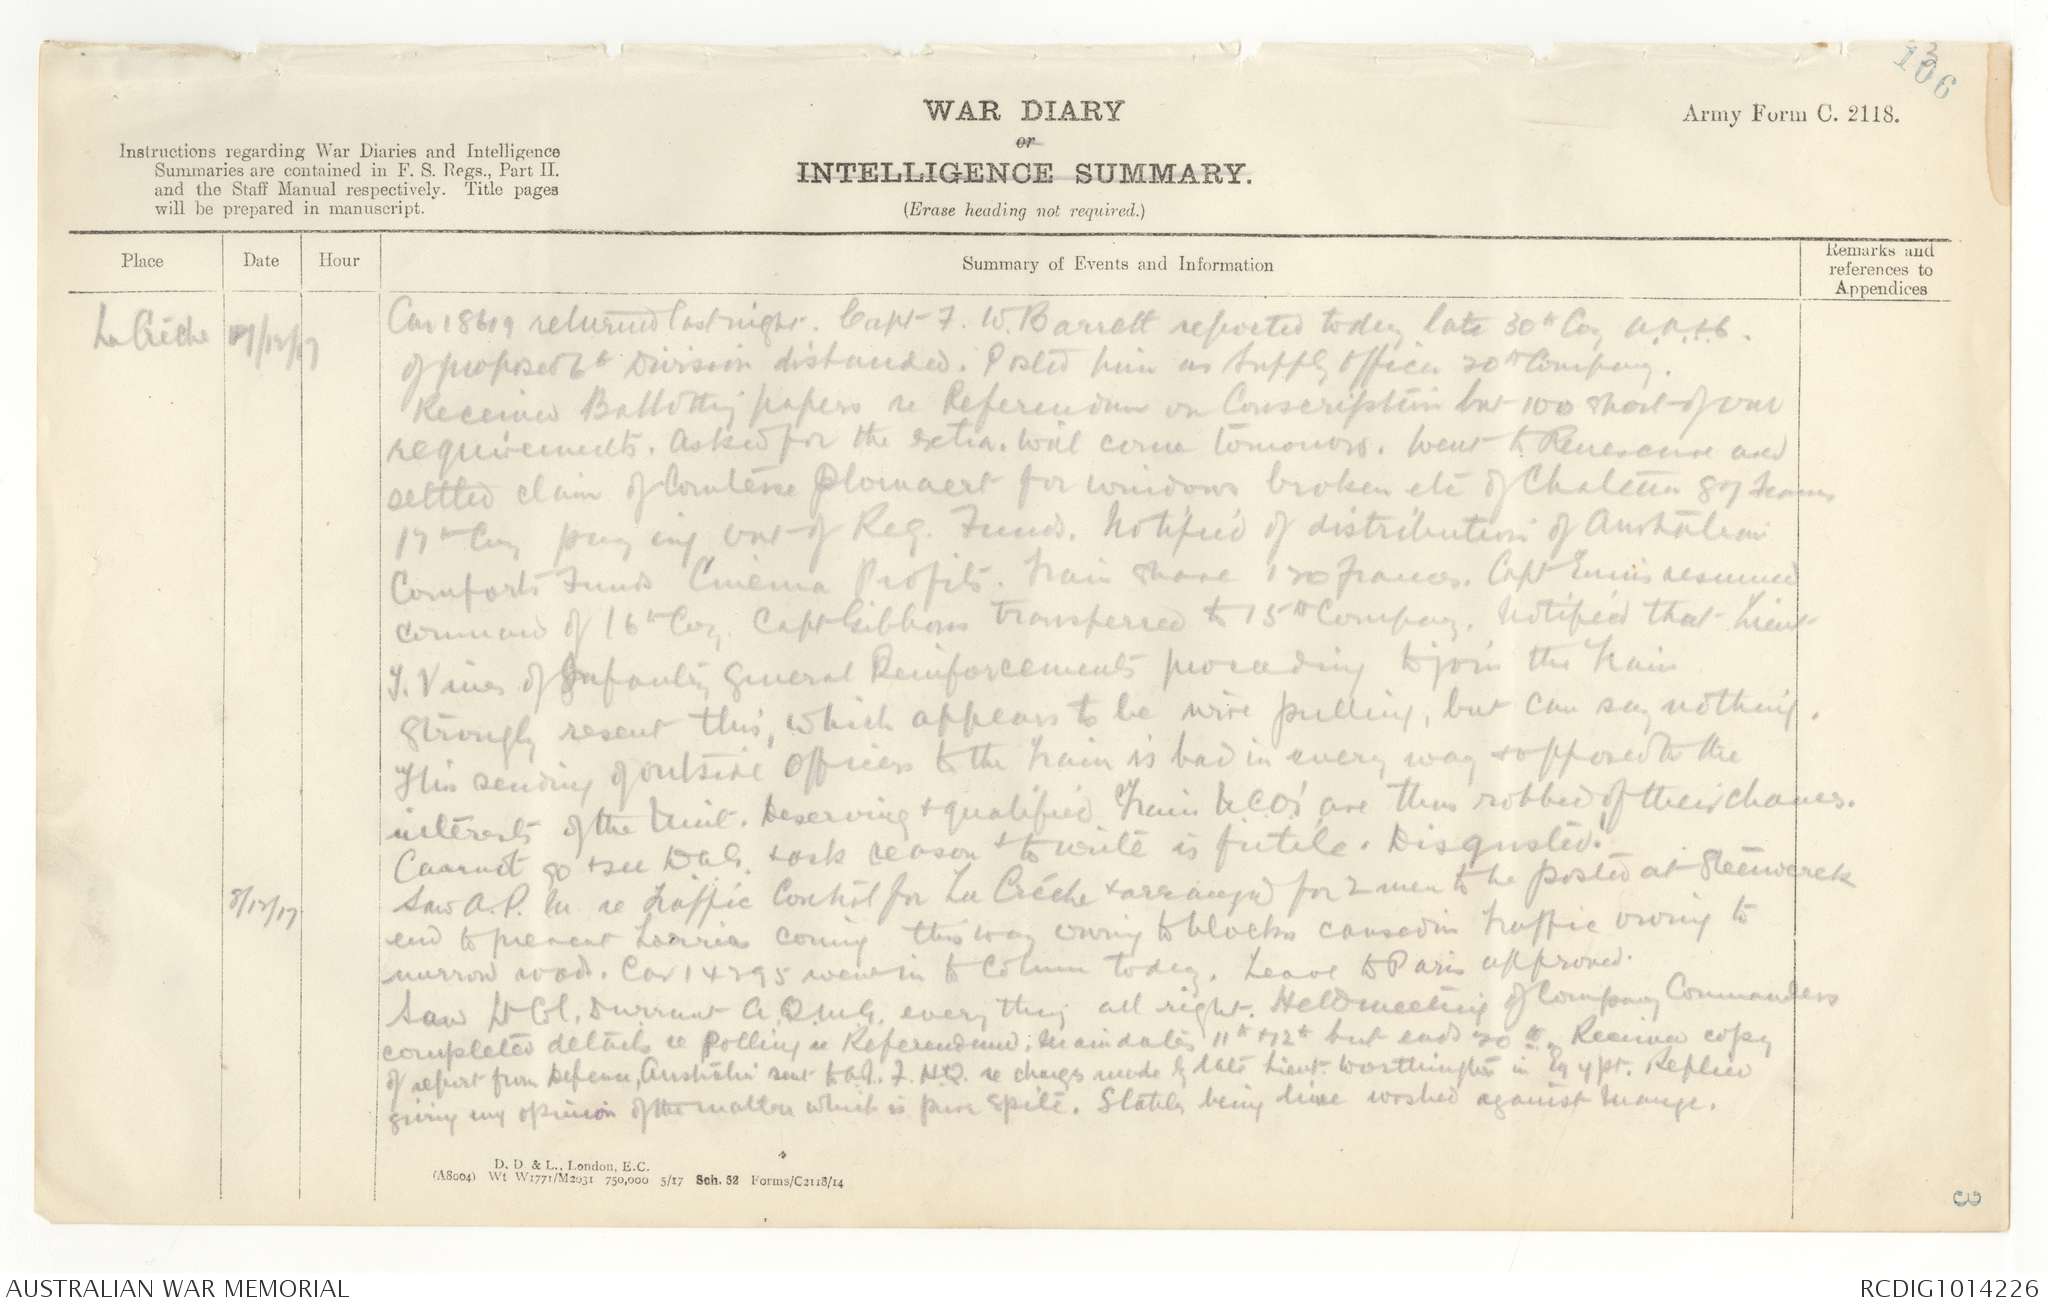 3
106
WAR DIARY
or
INTELLIGENCE SUMMARY.
(Erase heading not required.)
Army Form C. 2118.
Instructions regarding War Diaries and Intelligence
Summaries are contained in F. S. Regs., Part II.
and the Staff Manual respectively. Title pages
will be prepared in manuscript.
Place
Date
Hour
Summary of Events and Information
Remarks and
references to
Appendices
La Crèche
7/12/17
Car 18619 returned last night. Capt F. W. Barrett reported today late 30th Coy A.A.S.C.
of proposed 6th Division disbanded. Posted him as Supply Officer 20th Company.
Received Ballotting papers re Referendum on Conscription but 100 short of our
requirements. Asked for the extra. Will come tomorrow. Went to and
settled claim of Comtesse for windows broken etc of Chateau by
17th Coy paying out of Reg. Funds. Notified of distribution of Australian
Comforts Funds Cinema Profits. Train share 120 francs. Capt Ennis resumed
command of 16th Coy. Capt Gibbons transferred to 15th Company. Notified that Lieut
J. Vines of Infantry General Reinforcements proceeding to join the Train
strongly resent this, which appears to be wire pulling, but can say nothing.
This sending of outside officers to the Train is bad in every way & opposed to the
interests of the Unit. Deserving & qualified Train N.C.O's are thus robbed of their chances.
Cannot go & see DAG. & ask reason & to write is futile. Disgusted.
8/12/17
Saw A.P.M. re Traffic Control for La Crèche & arranged for 2 men to be posted at Steenwerck
end to prevent Lorries coming this way owing to blocks caused in traffic owing to
narrow road. Car 14295 went in to Column today. Leave to Paris approved.
Saw Lt Col. Durrant A.Q.M.G. everything all right. Held meeting of Company Commanders
completed details re Polling re Referendum. Main dates 11th & 12th but ends 20th. Received copy
of report from Defence, Australia sent to A.I.F. H.Q. re charges made by late Lieut Worthington in Egypt. Replied
giving my opinion of the matter which is pure spite. Stables being lime washed against mange.
D. D. & L., London, E.C.
(A8004) Wt W1771/M2031 750,000 5/17 Sch. 52 Forms/C2118/14
3
AUSTRALIAN WAR MEMORIAL
RCDIG1014226